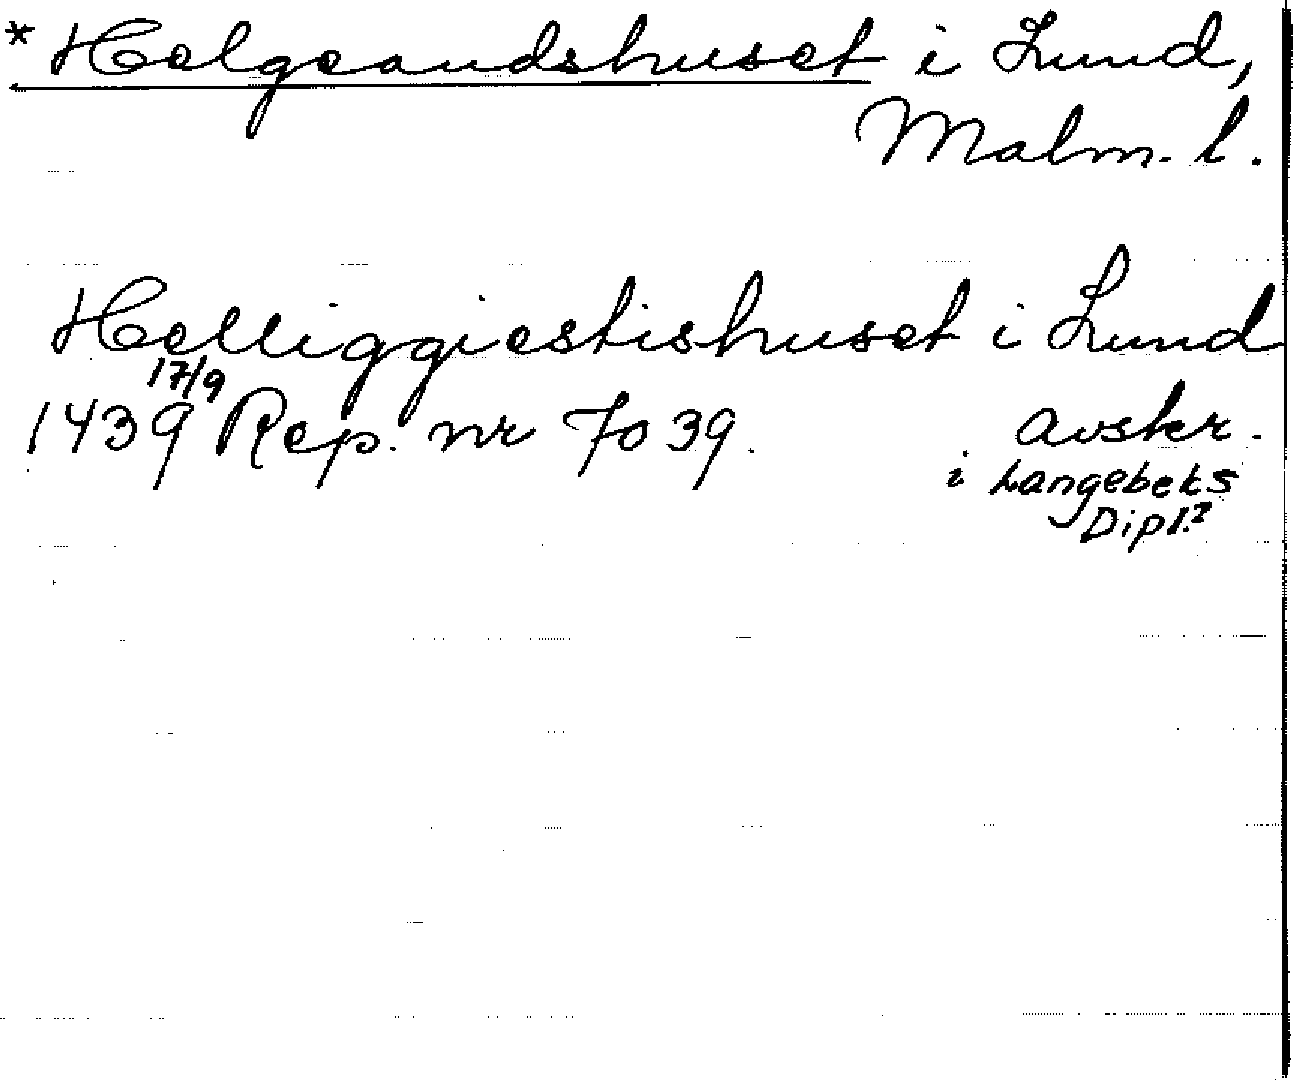 * Helgeandshuset i Lund,
Malm. l.
Helliggiestishuset i Lund
17/9
1439 Rep. nr 7039. avskr.
i Langebeks
Dipl.?